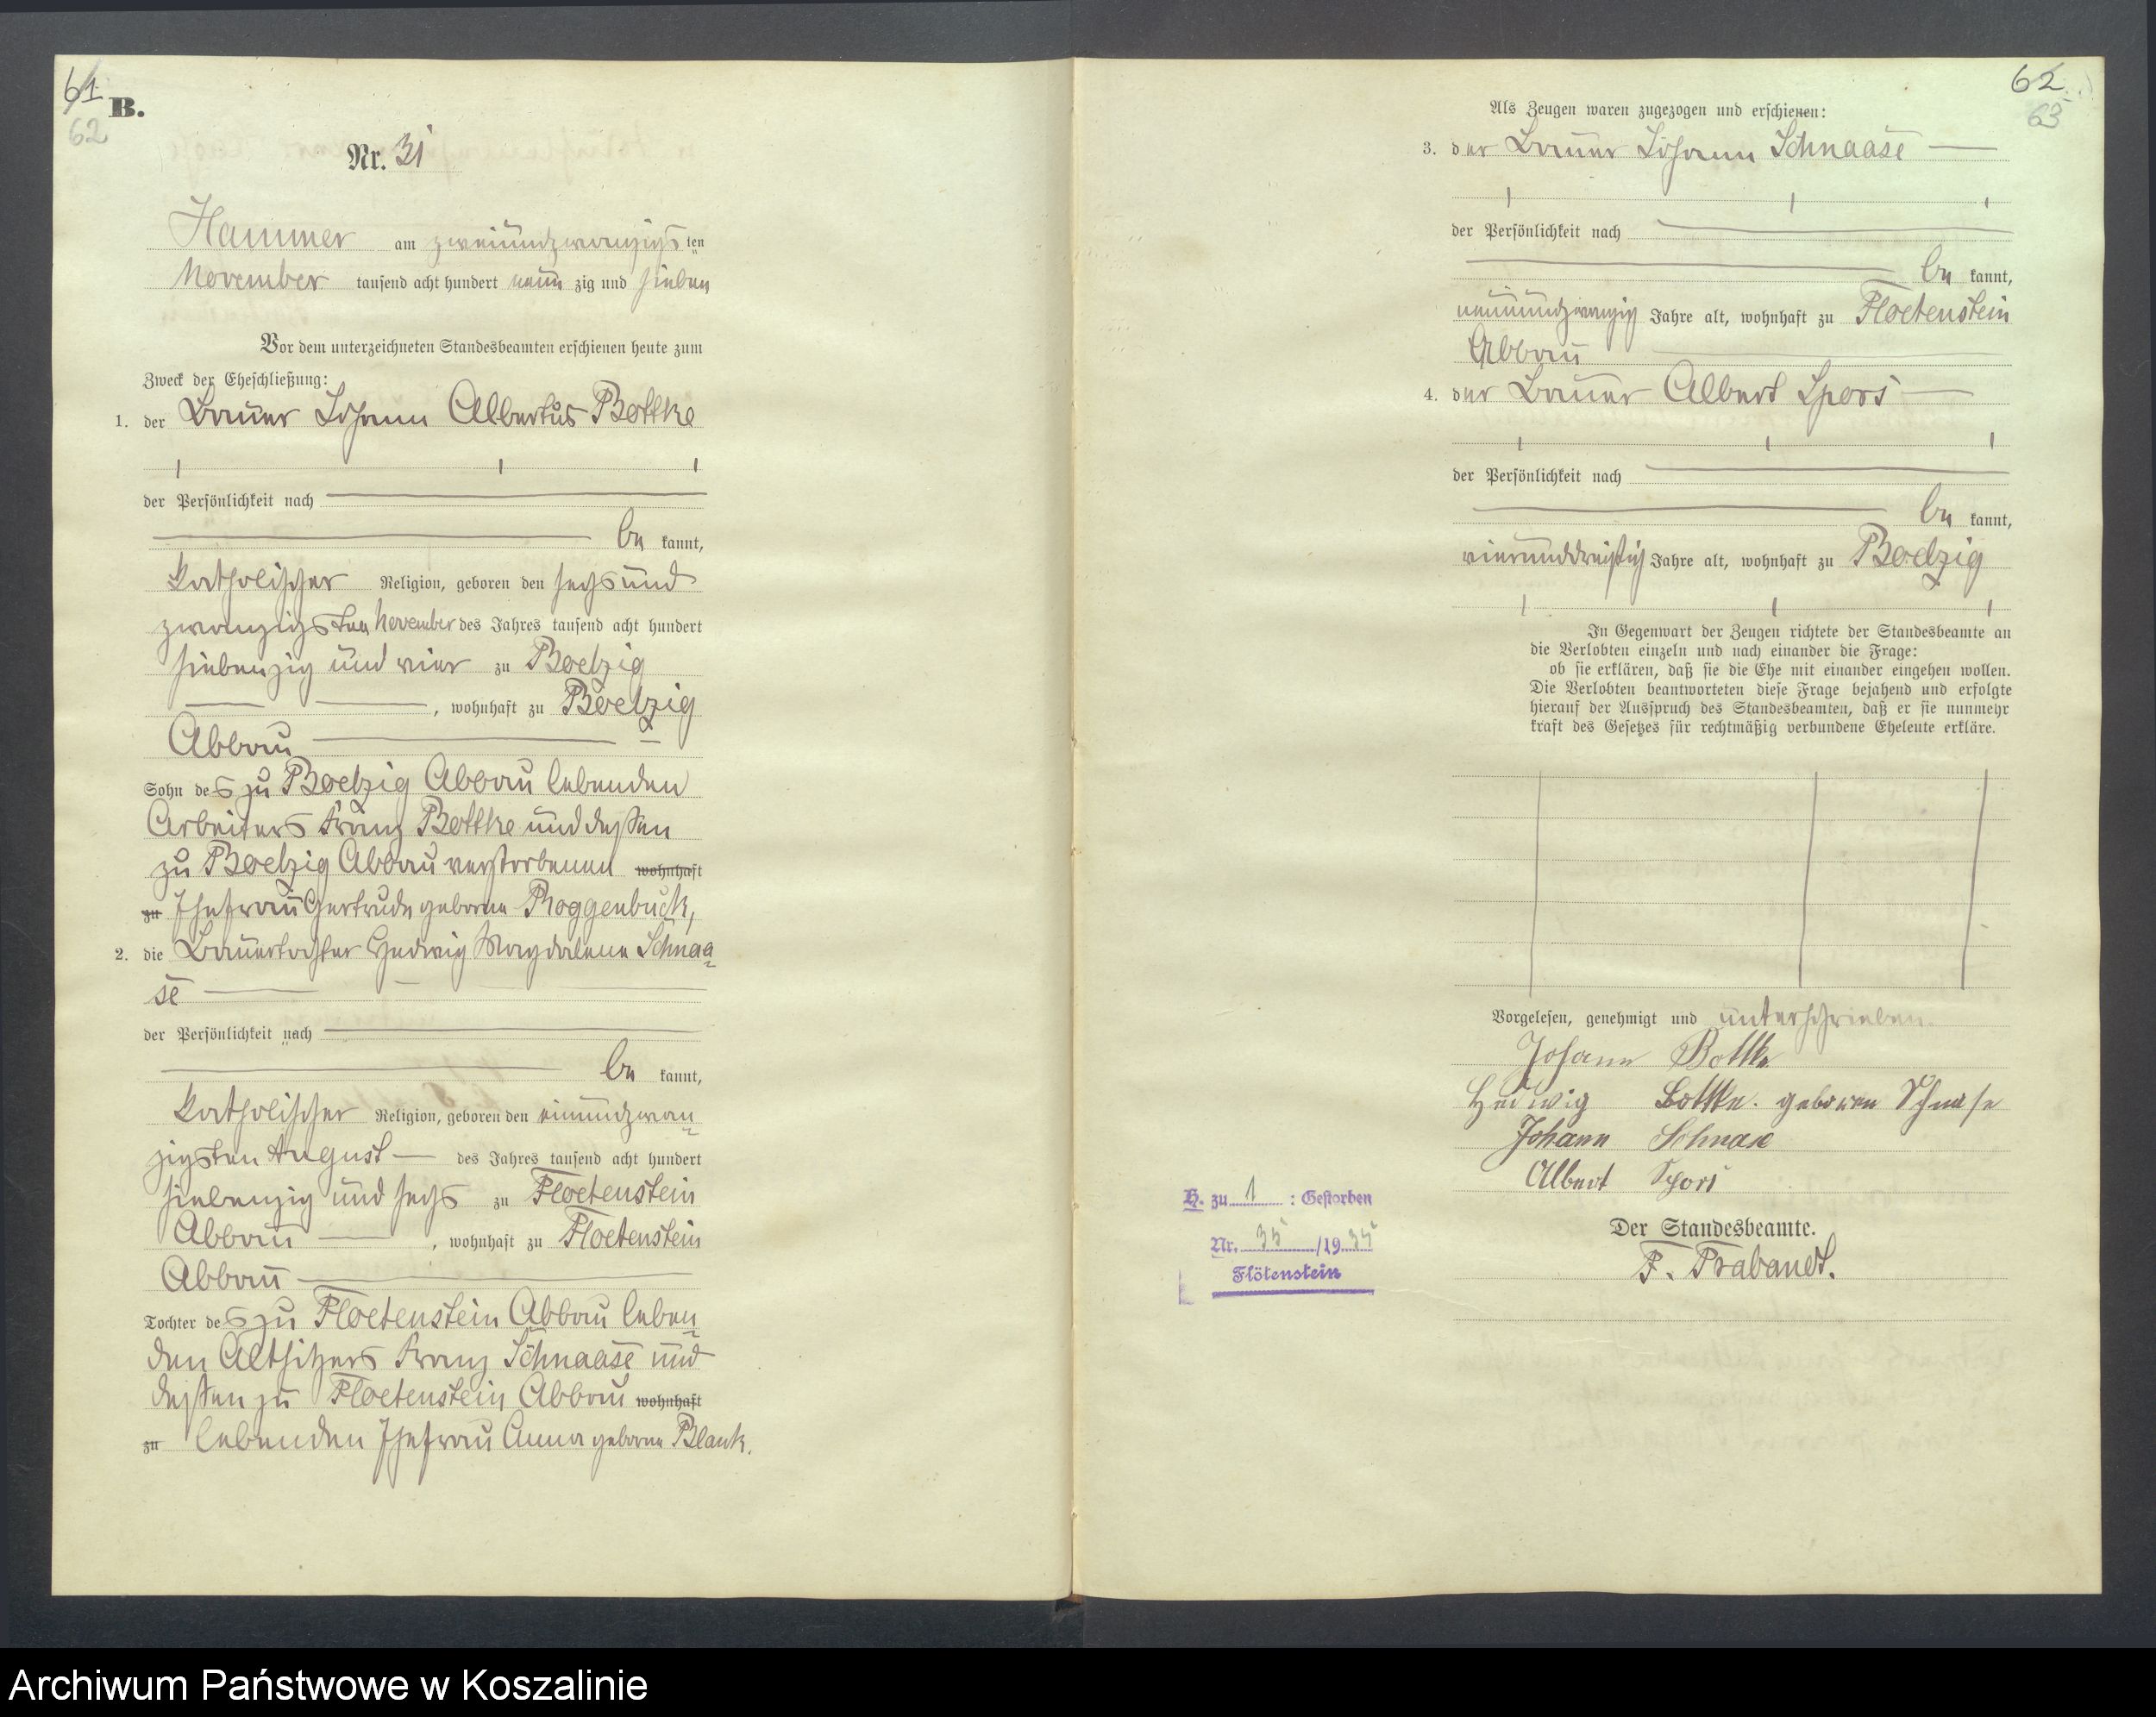 61
62
B.
Nr. 31
Hammer am zweiundzwanzigsten
November tausend acht hundert neunzig und sieben
Vor dem unterzeichneten Standesbeamten erschienen heute zum
Zweck der Eheschließung:
1. der Bauer Johann Albertus Bottke
der Persönlichkeit nach
be kannt,
katholischer Religion, geboren den sechsund
zwanzigsten November des Jahres tausend acht hundert
siebenzig und vier zu Boelzig
, wohnhaft zu Boelzig
Abbau
Sohn des zu Boelzig Abbau lebenden
Arbeiters Franz Bottke und dessen
zu Boelzig Abbau verstorbenen wohnhaft
zu Ehefrau Gertrude geborne Roggenbuck,
2. die Bauertochter Hedwig Magdalena Schnaa
se
der Persönlichkeit nach
be kannt,
katholischer Religion, geboren den einundzwan
zigsten August des Jahres tausend acht hundert
siebenzig und sechs zu Floetenstein
Abbau , wohnhaft zu Floetenstein
Abbau
Tochter des zu Floetenstein Abbau leben
den Altsitzers Franz Schnaase und
dessen zu Floetenstein Abbau wohnhaft
zu lebenden Ehefrau Anna geborne Blank.
62
63
Als Zeugen waren zugezogen und erschienen:
3. der Bauer Johann Schnaase
der Persönlichkeit nach
be kannt,
neunundzwanzig Jahre alt, wohnhaft zu Floetenstein
Abbau
4. der Bauer Albert Spors
der Persönlichkeit nach
be kannt,
vierunddreißig Jahre alt, wohnhaft zu Boelzig
In Gegenwart der Zeugen richtete der Standesbeamte an
die Verlobten einzeln und nach einander die Frage:
ob sie erklären, daß sie die Ehe mit einander eingehen wollen.
Die Verlobten beantworteten diese Frage bejahend und erfolgte
hierauf der Ausspruch des Standesbeamten, daß er sie nunmehr
kraft des Gesetzes für rechtmäßig verbundene Eheleute erkläre.
Vorgelesen, genehmigt und unterschrieben.
Johann Bottke
Hedwig Bottke. geboren Schnase
Johann Schnase
Albert Spors
Der Standesbeamte.
F. Trabandt.
H. zu 1 : Gestorben
Nr. 35 /19 35
Flötenstein
Archiwum Państwowe w Koszalinie